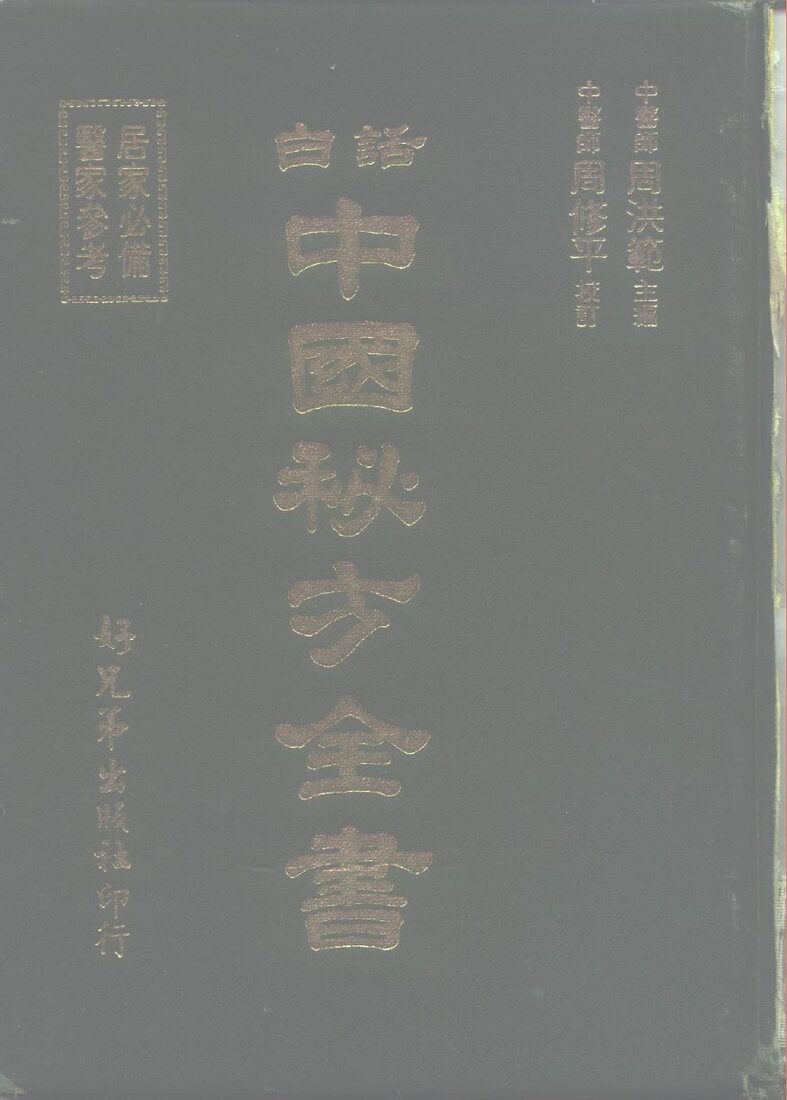 中醫師周洪範主編
中醫師周修平校訂
白話
中國秘方全書
居家必備
醫家參考
好兄弟出版社印行